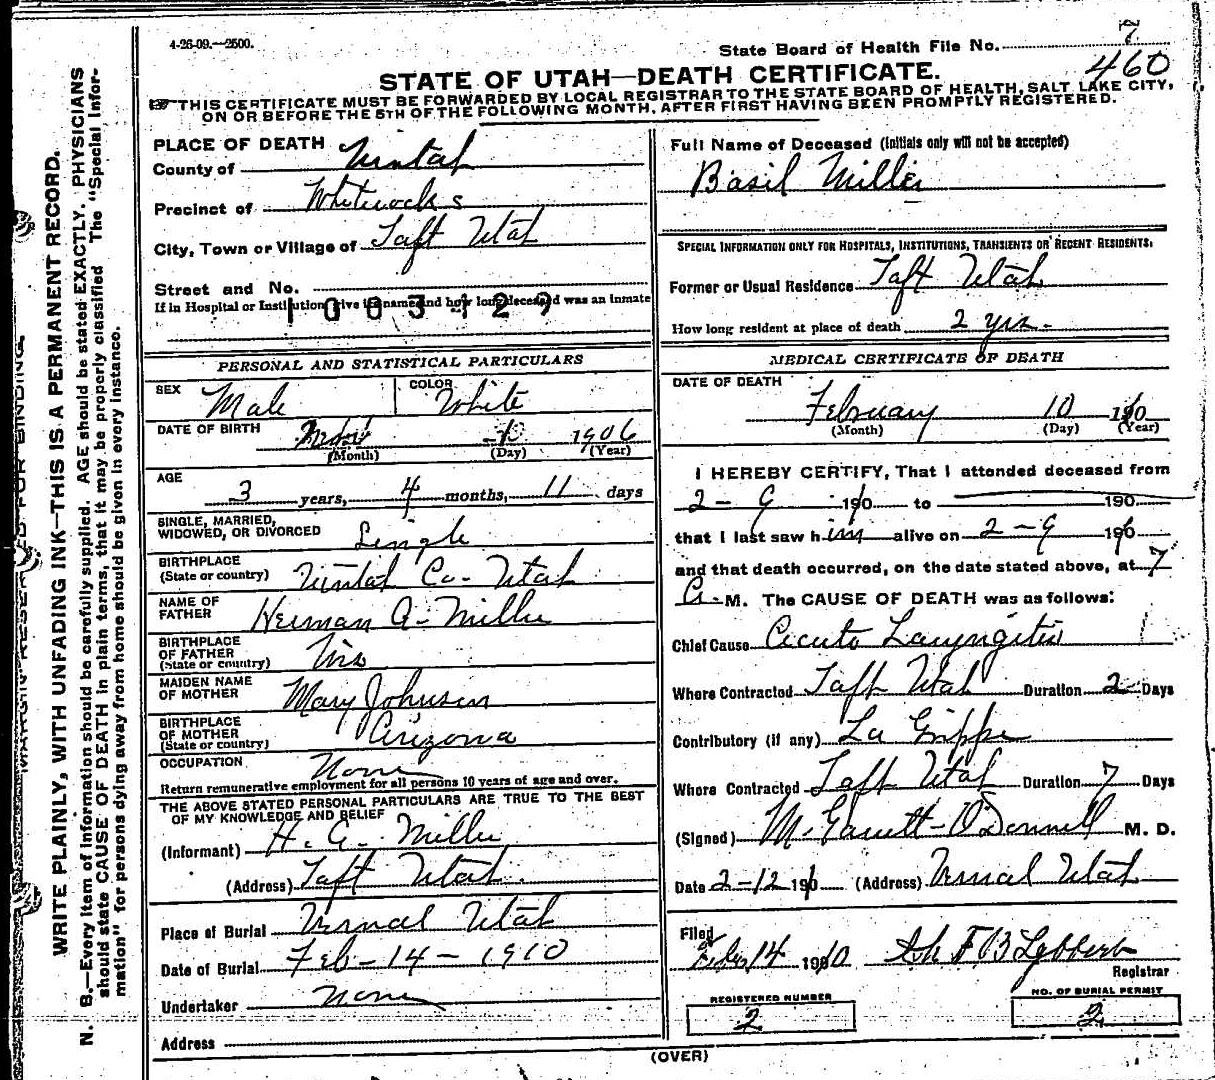 4-26-09.—2500.
State Board of Health File No. 7
460
STATE OF UTAH—DEATH CERTIFICATE.
THIS CERTIFICATE MUST BE FORWARDED BY LOCAL REGISTRAR TO THE STATE BOARD OF HEALTH, SALT LAKE CITY,
ON OR BEFORE THE 5TH OF THE FOLLOWING MONTH, AFTER FIRST HAVING BEEN PROMPTLY REGISTERED.
WRITE PLAINLY, WITH UNFADING INK—THIS IS A PERMANENT RECORD.
N. B.—Every item of information should be carefully supplied. AGE should be stated EXACTLY. PHYSICIANS
should state CAUSE OF DEATH in plain terms, that it may be properly classified. The "Special Infor-
mation" for persons dying away from home should be given in every instance.
PLACE OF DEATH
County of Uintah
Precinct of Whiterocks
City, Town or Village of Taft Utah
Street and No.
If in Hospital or Institution, give its name and how long deceased was an inmate
1003129
PERSONAL AND STATISTICAL PARTICULARS
SEX Male COLOR White
DATE OF BIRTH 1906
(Month) (Day) (Year)
AGE
3 years, 4 months, 11 days
SINGLE, MARRIED,
WIDOWED, OR DIVORCED Single
BIRTHPLACE
(State or country) Uintah Co- Utah
NAME OF
FATHER Herman A- Miller
BIRTHPLACE
OF FATHER
(State or country) Wis
MAIDEN NAME
OF MOTHER Mary Johnson
BIRTHPLACE
OF MOTHER
(State or country) Arizona
OCCUPATION None
Return remunerative employment for all persons 10 years of age and over.
THE ABOVE STATED PERSONAL PARTICULARS ARE TRUE TO THE BEST
OF MY KNOWLEDGE AND BELIEF
(Informant) H. A. Miller
(Address) Taft Utah.
Place of Burial Vernal Utah
Date of Burial Feb-14-1910
Undertaker None
Address
Full Name of Deceased (Initials only will not be accepted)
Basil Miller
SPECIAL INFORMATION ONLY FOR HOSPITALS, INSTITUTIONS, TRANSIENTS OR RECENT RESIDENTS.
Former or Usual Residence Taft Utah
How long resident at place of death 2 yrs.
MEDICAL CERTIFICATE OF DEATH
DATE OF DEATH
February 10 190
(Month) (Day) (Year)
I HEREBY CERTIFY, That I attended deceased from
2-9 190 to 190
that I last saw him alive on 2-9 190
and that death occurred, on the date stated above, at 7
A. M. The CAUSE OF DEATH was as follows:
Chief Cause Acute Laryngitis
Where Contracted Taft Utah Duration 2 Days
Contributory (if any) La Grippe
Where Contracted Taft Utah Duration 7 Days
(Signed) M. Garrett-O'Donnell M. D.
Date 2-12 190 (Address) Vernal Utah
Filed
14 1910
Registrar
REGISTERED NUMBER
2
NO. OF BURIAL PERMIT
2
(OVER)